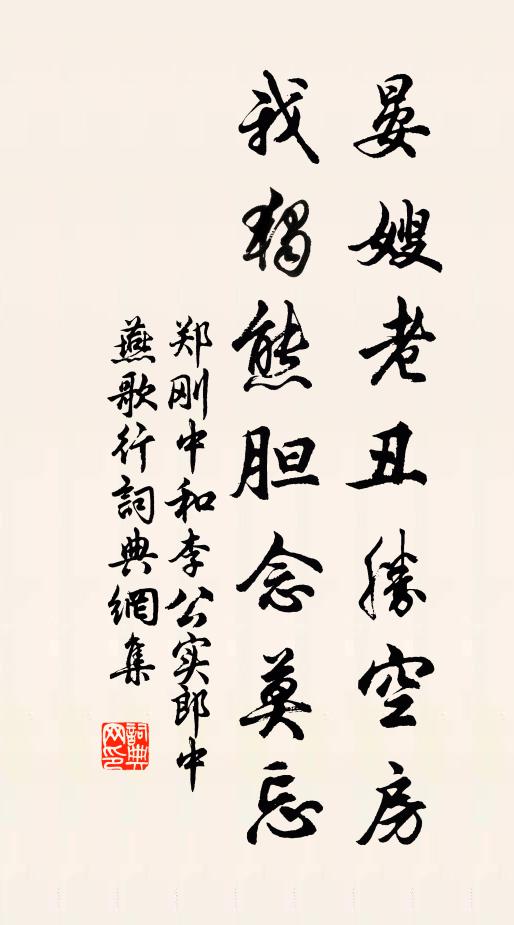 晏嫂老丑勝空房
我獨熊胆念莫忘
郑刚中和李公实郎中
燕歌行詞典網集
詞典网印